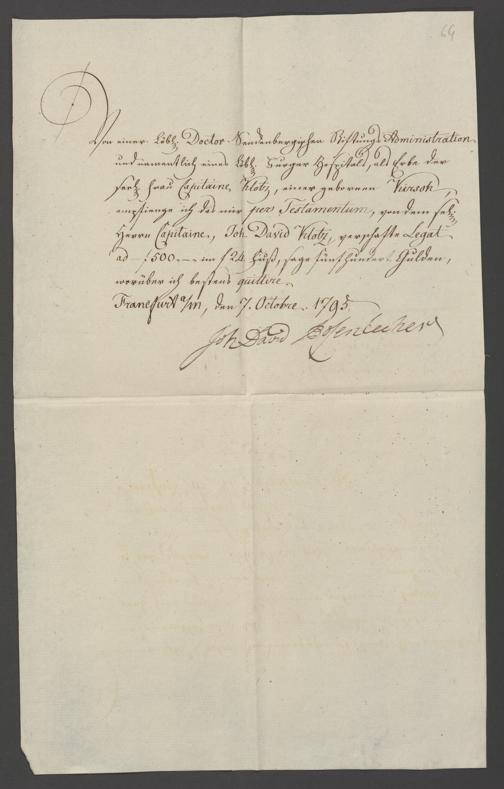 64
Von einer Löbl. Doctor Senckenbergischen Stiftungs Administration
und namentlich eines Löbl. Burger Hospitals, als Erbe der
Seel. Frau Capitaine, Klotz, einer gebornen
empfienge ich das mir per Testamentum, von dem seel.
Herrn Capitaine, Joh. David Klotz, verschafte Legat
ad f 500.— im f 24 Fuß, sage fünfhundert Gulden,
worüber ich bestens quittire.
Franckfurt a/m, den 7. Octobre. 1795
Joh David